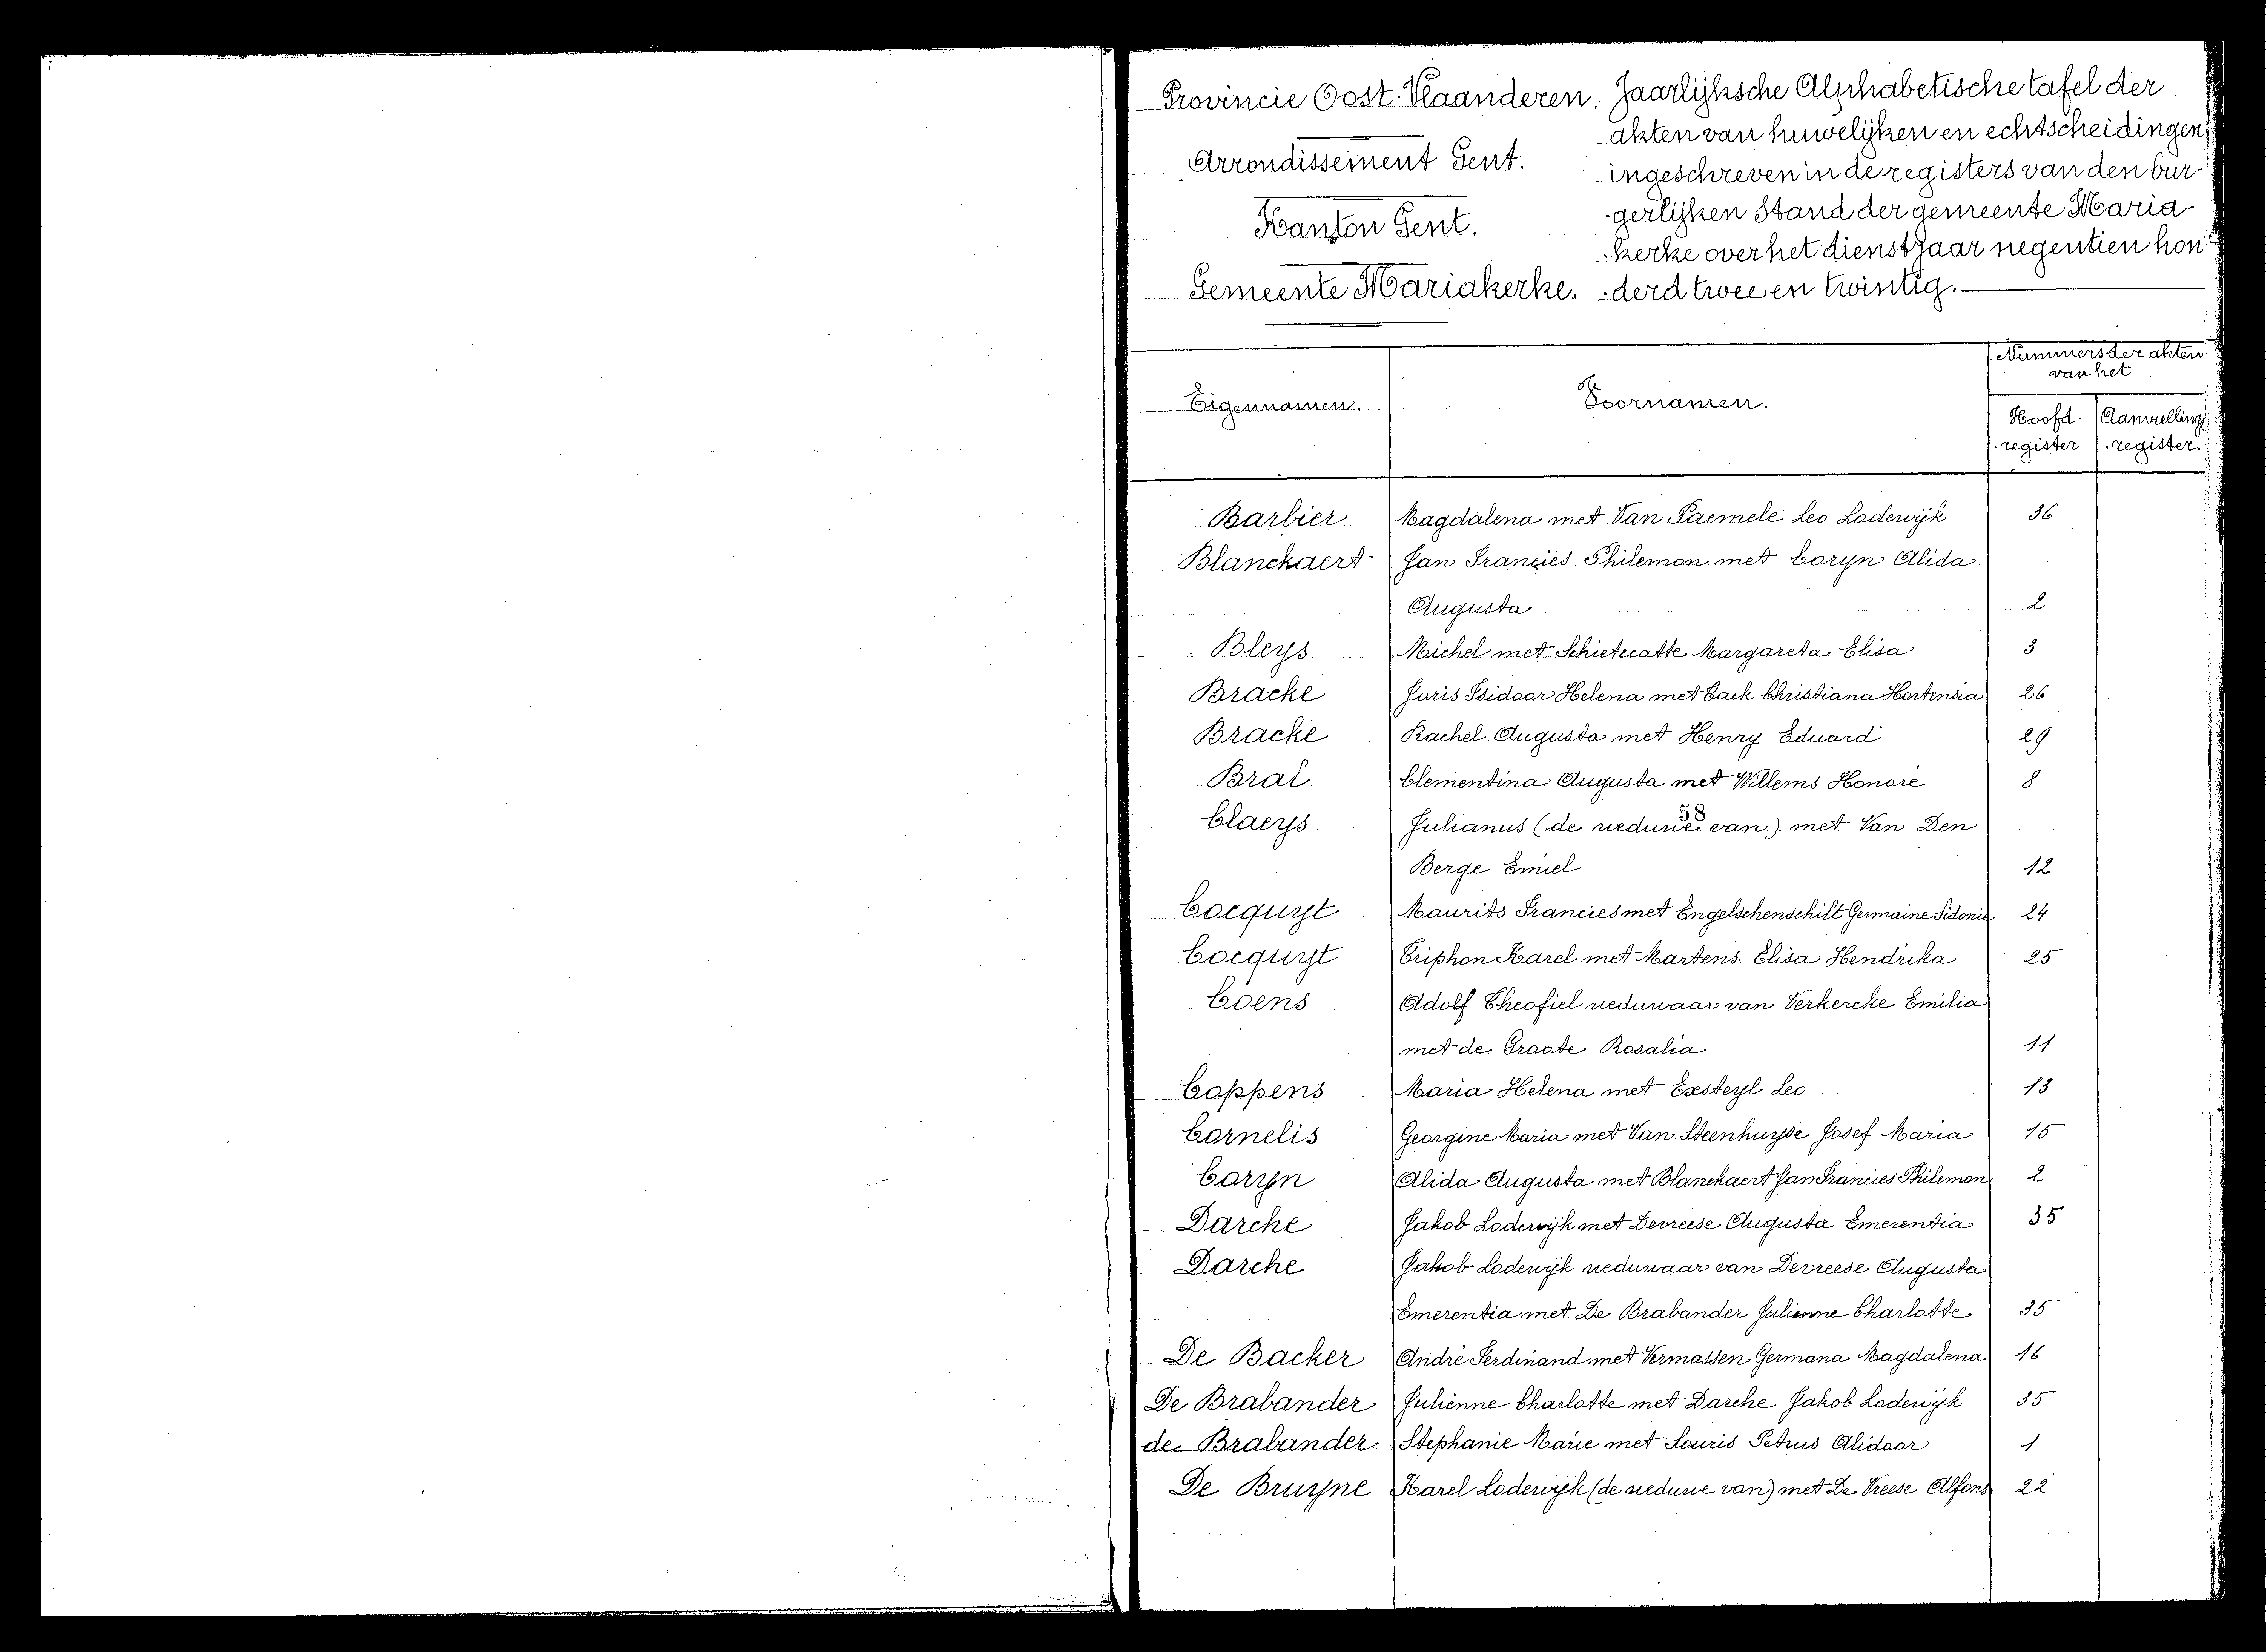 Provincie Oost-Vlaanderen.
Arrondissement Gent.
Kanton Gent.
Gemeente Mariakerke.
Jaarlijksche Alphabetische tafel der
akten van huwelijken en echtscheidingen
ingeschreven in de registers van den bur-
-gerlijken Stand der gemeente Maria-
-kerke over het dienstjaar negentien hon-
-derd twee en twintig.
Eigennamen. Voornamen. Nummers der akten
van het
Hoofd- Aanvulling
register register.
Barbier Magdalena met Van Paemele Leo Lodewijk 36
Blanckaert Jan Francies Philemon met Coryn Alida
Augusta 2
Bleys Michel met Schietecatte Margareta Elisa 3
Bracke Joris Isidoor Helena met Cack Christiana Hortensia 26
Bracke Rachel Augusta met Henry Eduard 29
Bral Clementina Augusta met Willems Honoré 8
58
Claeys Julianus (de weduwe van) met Van Den
Berge Emiel 12
Cocquyt Maurits Francies met Engelschenschilt Germaine Sidonie 24
Cocquyt Triphon Karel met Martens Elisa Hendrika 25
Coens Adolf Theofiel weduwaar van Verkercke Emilia
met de Groote Rosalia 11
Coppens Maria Helena met Exsteyl Leo 13
Cornelis Georgine Maria met Van Steenhuyse Josef Maria 15
Coryn Alida Augusta met Blanckaert Jan Francies Philemon 2
Darche Jakob Lodewijk met Devreese Augusta Emerentia 35
Darche Jakob Lodewijk weduwaar van Devreese Augusta
Emerentia met De Brabander Julienne Charlotte 35
De Backer André Ferdinand met Vermassen Germana Magdalena 16
De Brabander Julienne Charlotte met Darche Jakob Lodewijk 35
de Brabander Stephanie Marie met Souris Petrus Alidoor 1
De Bruyne Karel Lodewijk (de weduwe van) met De Vreese Alfons 22